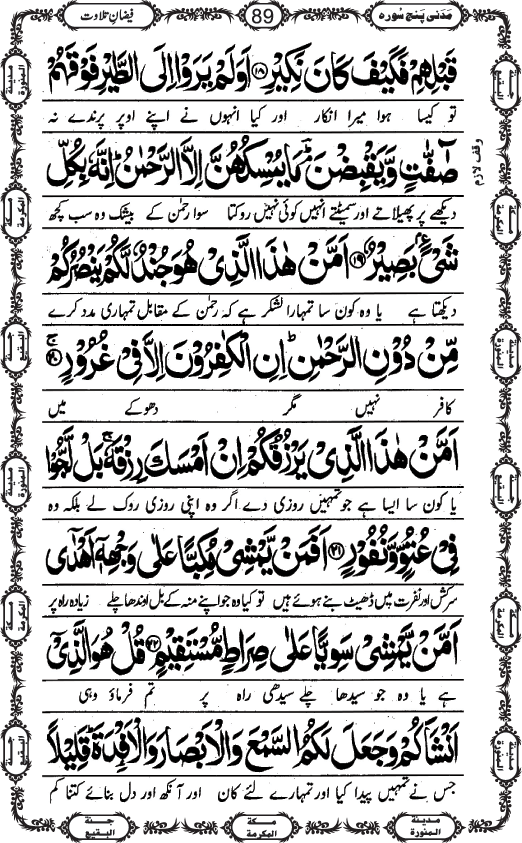 مَدَنی پَنج سُورہ
89
فیضانِ تلاوت
قَبْلِهِمْ فَكَيْفَ كَانَ نَكِيْرِ ﴿۱۸﴾ اَوَلَمْ يَرَوْا اِلَى الطَّيْرِ فَوْقَهُمْ
تو کیسا ہوا میرا انکار اور کیا انہوں نے اپنے اوپر پرندے نہ
صٰٓفّٰتٍ وَّيَقْبِضْنَ ؔۘ مَا يُمْسِكُهُنَّ اِلَّا الرَّحْمٰنُ ؕ اِنَّهٗ بِكُلِّ
وقف لازم
دیکھے پر پھیلاتے اور سمیٹتے انہیں کوئی نہیں روکتا سوا رحمٰن کے بیشک وہ سب کچھ
شَىْءٍۭ بَصِيْرٌ ﴿۱۹﴾ اَمَّنْ هٰذَا الَّذِىْ هُوَ جُنْدٌ لَّكُمْ يَنْصُرُكُمْ
دیکھتا ہے یا وہ کون سا تمہارا لشکر ہے کہ رحمٰن کے مقابل تمہاری مدد کرے
مِّنْ دُوْنِ الرَّحْمٰنِ ؕ اِنِ الْكٰفِرُوْنَ اِلَّا فِىْ غُرُوْرٍ ﴿۲۰﴾ۚ
کافر نہیں مگر دھوکے میں
اَمَّنْ هٰذَا الَّذِىْ يَرْزُقُكُمْ اِنْ اَمْسَكَ رِزْقَهٗ ۚ بَلْ لَّجُّوْا
یا کون سا ایسا ہے جو تمہیں روزی دے اگر وہ اپنی روزی روک لے بلکہ وہ
فِىْ عُتُوٍّ وَّنُفُوْرٍ ﴿۲۱﴾ اَفَمَنْ يَّمْشِىْ مُكِبًّا عَلٰى وَجْهِهٖۤ اَهْدٰٓى
سرکش اور نفرت میں ڈھیٹ بنے ہوئے ہیں تو کیا وہ جو اپنے منہ کے بل اوندھا چلے زیادہ راہ پر
اَمَّنْ يَّمْشِىْ سَوِيًّا عَلٰى صِرَاطٍ مُّسْتَقِيْمٍ ﴿۲۲﴾ قُلْ هُوَ الَّذِىْۤ
ہے یا وہ جو سیدھا چلے سیدھی راہ پر تم فرماؤ وہی
اَنْشَاَكُمْ وَجَعَلَ لَكُمُ السَّمْعَ وَالْاَبْصَارَ وَالْاَفْـِٕدَةَ ؕ قَلِيْلًا
جس نے تمہیں پیدا کیا اور تمہارے لئے کان اور آنکھ اور دل بنائے کتنا کم
مدینۃ المنورۃ
مکۃ المکرمۃ
جنۃ البقیع
مدینۃ المنورۃ
مکۃ المکرمۃ
جنۃ البقیع
جنۃ البقیع
مکۃ المکرمۃ
مدینۃ المنورۃ
جنۃ البقیع
مکۃ المکرمۃ
مدینۃ المنورۃ
مدینۃ المنورۃ
مکۃ المکرمۃ
جنۃ البقیع